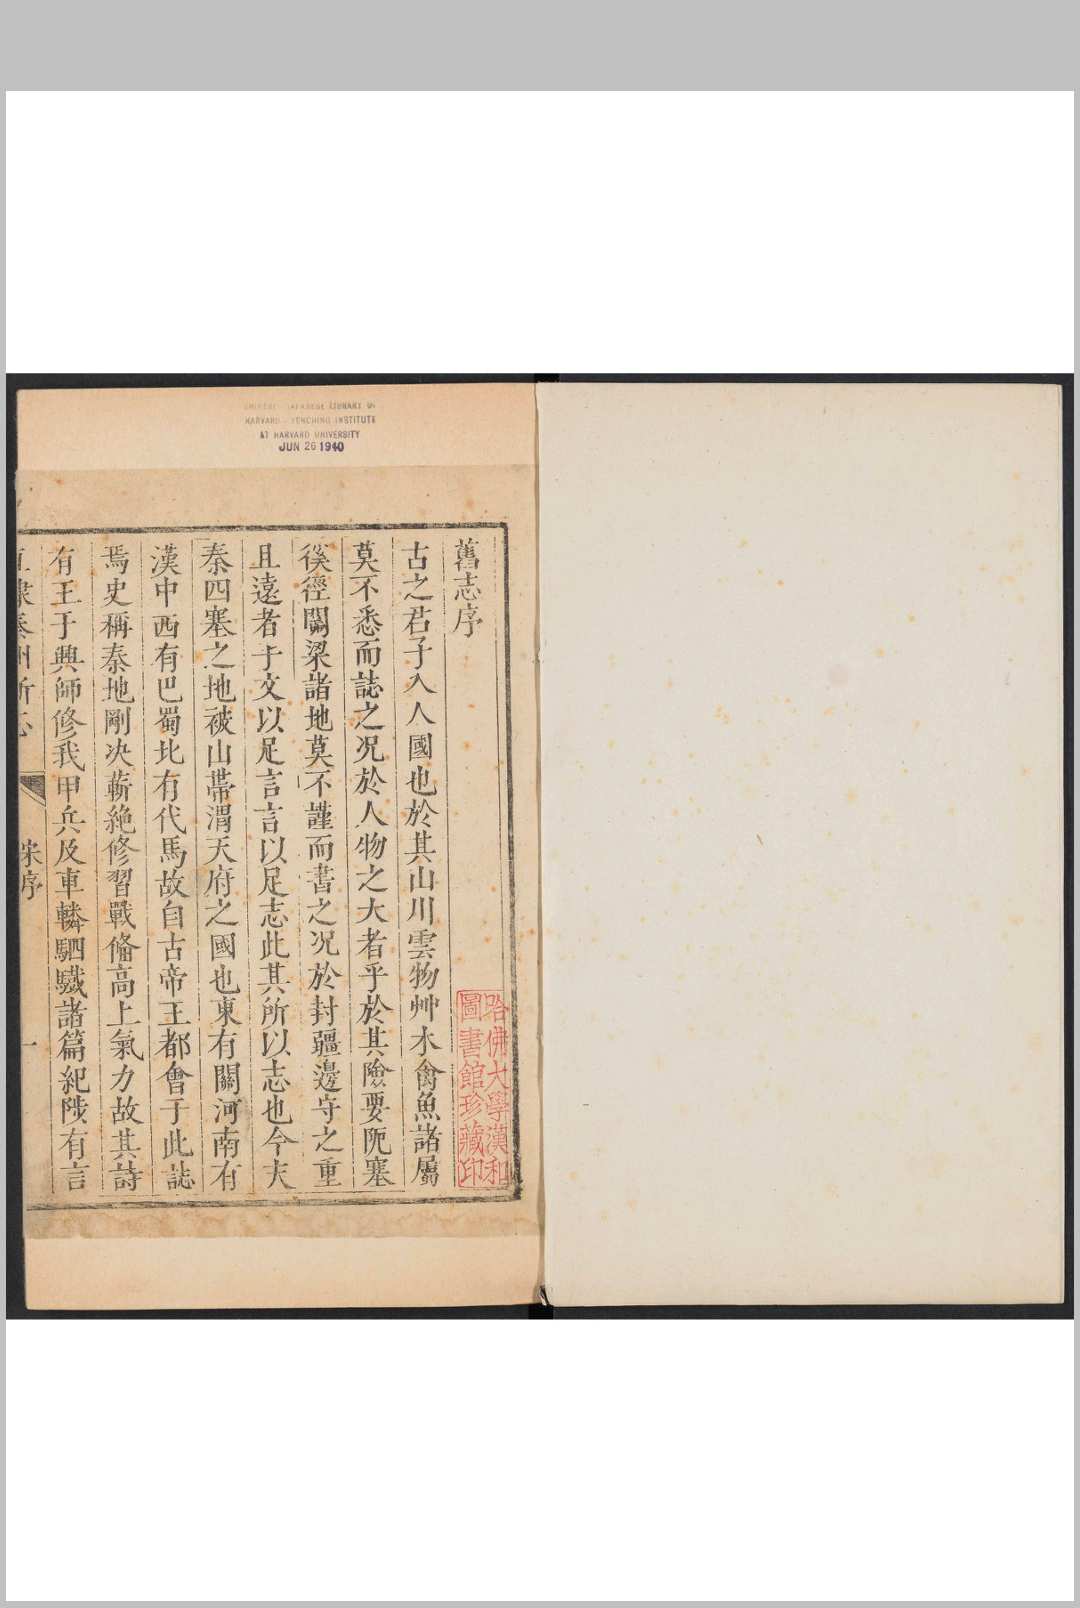 CHINESE-JAPANESE LIBRARY OF
HARVARD-YENCHING INSTITUTE
AT HARVARD UNIVERSITY
JUN 26 1940
舊志序
古之君子入人國也於其山川雲物艸木禽魚諸屬
莫不悉而誌之况於人物之大者乎於其險要阨塞
徯徑關梁諸地莫不謹而書之况於封疆邊守之重
且遠者乎文以足言言以足志此其所以志也今夫
秦四塞之地被山帶渭天府之國也東有關河南有
漢中西有巴蜀北有代馬故自古帝王都會于此誌
焉史稱秦地剛决蘄絶修習戰俻高上氣力故其詩
有王于興師修我甲兵及車轔駟驖諸篇紀陟有言
直隸秦州新志
宋序
一
哈佛大學漢和
圖書館珍藏印